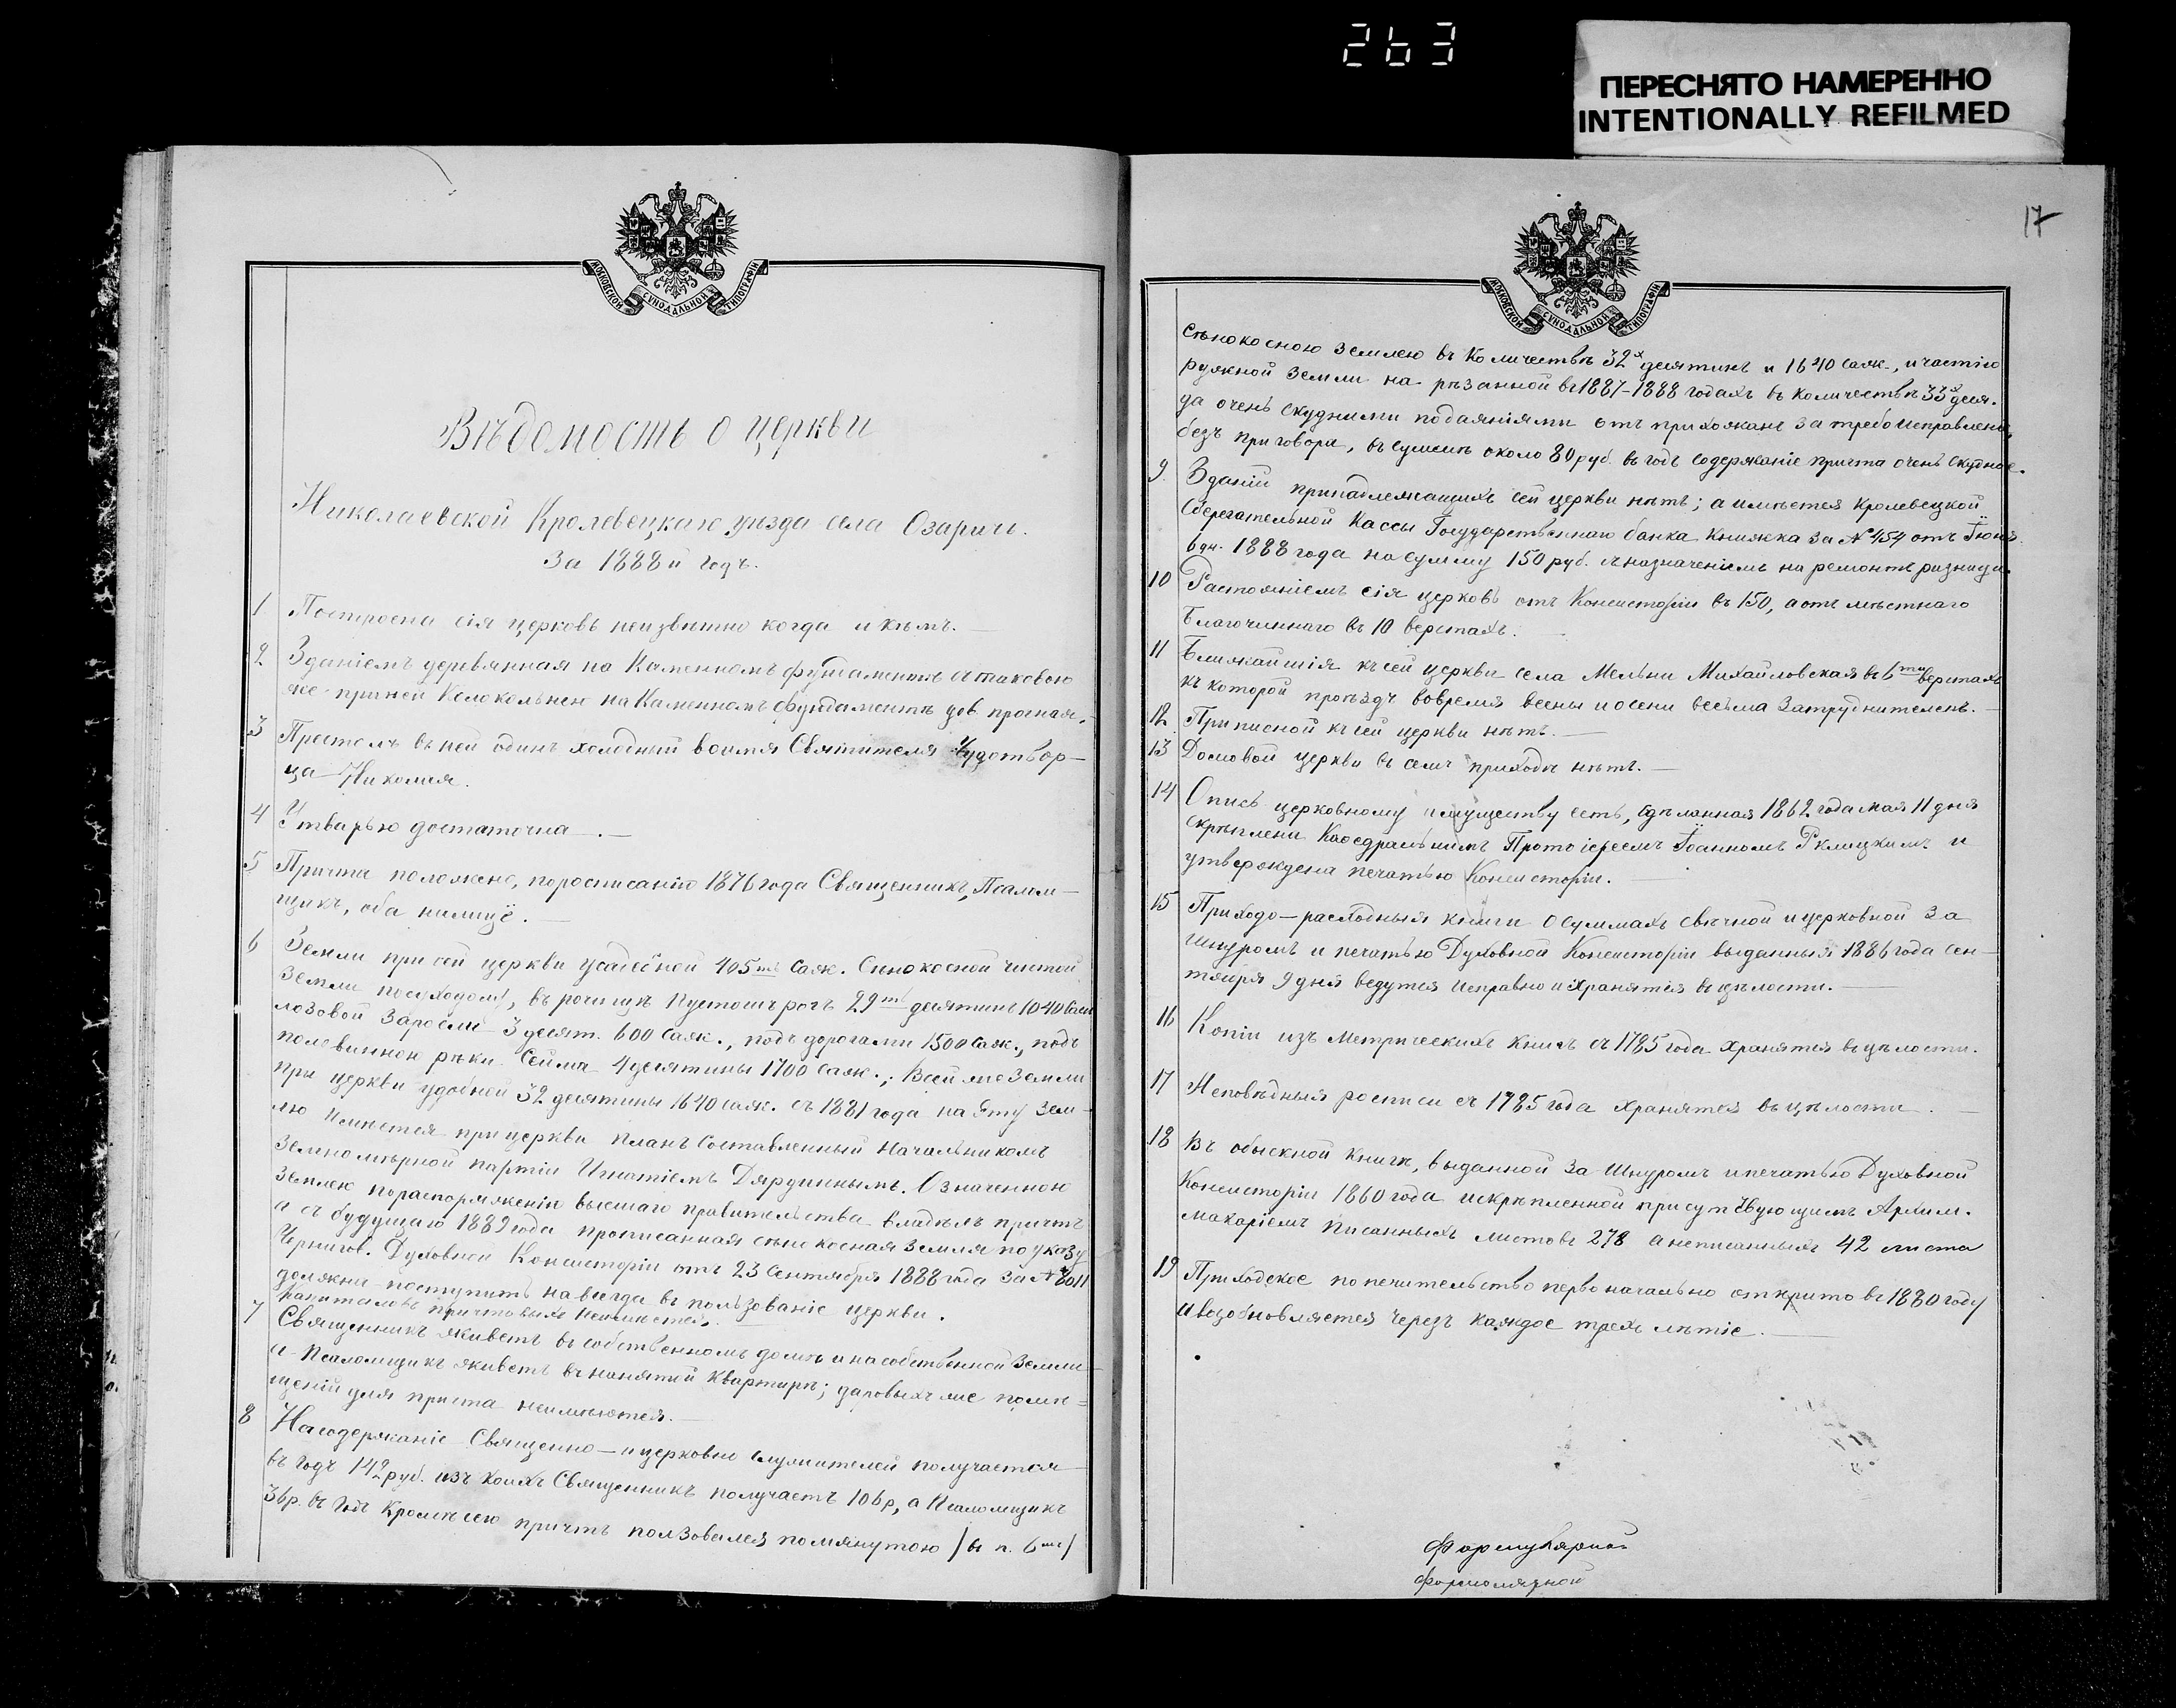 263
ПЕРЕСНЯТО НАМЕРЕННО
INTENTIONALLY REFILMED
МОСКОВСКОЙ СѴНОДАЛЬНОЙ ТИПОГРАФІИ
Вѣдомость о церкви
Николаевской Кролевецкаго уѣзда села Озаричъ.
За 1888й годъ.
1 Построена сія церковь неизвѣстно когда и кѣмъ.
2 Зданіемъ деревянная на Каменномъ фундаментѣ съ таковою
же при ней Колокольнею на Каменномъ фундаментѣ
3 Престолъ въ ней одинъ холодный во имя Святителя Чудотвор-
ца Николая.
4 Утварью достаточна.
5 Причта положено, по росписанію 1876 года Священникъ, Псалом-
щикъ, оба налицѣ.
6 Земли при сей церкви усадебной 405 саж. Сѣнокосной чистой
земли въ рочищѣ 29 десятинъ 1040 саж
лозовой заросли 3 десят. 600 саж., подъ дорогами 1500 саж., подъ
половиною рѣки Сейма 4 десятины 1700 саж.; Всей же земли
при церкви удобной 32 десятины 1640 саж. съ 1881 года на эту зем-
лю имѣется при церкви планъ составленный Начальникомъ
Земномѣрной партіи Игнатіемъ Означенною
землею по распоряженію высшаго правительства владѣлъ причтъ
а съ будущаго 1889 года прописанная сѣнокосная земля по указу
Чернигов. Духовной Консисторіи отъ 23 Сентября 1888 года за №
должна поступить навсегда въ пользованіе церкви.
капиталовъ причтовыхъ неимѣется.
7 Священникъ живетъ въ собственномъ домѣ и на собственной земли
а Псаломщикъ живетъ въ нанятой квартирѣ; даровыхъ же помѣ-
щеній для причта неимѣются.
8 На содержаніе Священно-и церковно служителей получается
въ годъ 142 руб. изъ коихъ Священникъ получаетъ 106 р, а Псаломщикъ
36 р. въ годъ Кромѣ сего причтъ ползовался помянутою /въ п. 6мъ/
17
МОСКОВСКОЙ СѴНОДАЛЬНОЙ ТИПОГРАФІИ
сѣнокосною землею въ количествѣ 32х десятинъ и 1640 саж., и частію
ружной земли на рѣзанной въ 1887-1888 годахъ въ количествѣ 33х деся.
да очень скудними подаяніями отъ прихожанъ за требоисправлен.
безъ приговора, въ суммѣ около 80 руб. въ годъ содержаніе причта очень скудное.
9. Зданій принадлежащихъ сей церкви нѣтъ; а имѣется Кролевецкой
Сберегательной Кассы Государственнаго банка Книжка за № 454 отъ Іюня
6 дн. 1888 года на сумму 150 руб. съ назначеніемъ на ремонтъ ризницы.
10 Растояніемъ сія церковь отъ Консисторіи въ 150, а отъ мѣстнаго
Благочиннаго въ 10 верстахъ.
11 Ближайшія къ сей церкви села Мельни Михайловская въ 6ти верстахъ
къ которой проѣздъ вовремя весны и осени весьма затруднителенъ.
12 Приписной къ сей церкви нѣтъ.
13 Домовой церкви въ семъ приходѣ нѣтъ.
14 Опись церковному имуществу есть, сдѣланная 1862 года мая 11 дня
скрѣплена Каѳедральнимъ Протоіереемъ Іоанномъ Рклицкимъ и
утверждена печатью Консисторіи.
15 Приходо-расходныя книги о суммахъ свѣчной и церковной за
шнуромъ и печатью Духовной Консисторіи выданныя 1886 года сен-
тября 9 дня ведутся исправно и хранятся въ цѣлости.
16 Копіи изъ метрическихъ книгъ съ 1785 года хранятся въ цѣлости.
17 Исповѣдныя росписи съ 1785 года хранятся въ цѣлости.
18 Въ обыскной книгѣ, выданной за шнуромъ и печатью Духовной
Консисторіи 1860 года и скрѣпленной присутствующимъ Архим.
Макаріемъ писанныхъ листовъ 278 а неписанныхъ 42 листа
19 Приходское попечительство первоначально открыто въ 1880 году
и возобновляется черезъ каждое трехъ лѣтіе.
Формулярной